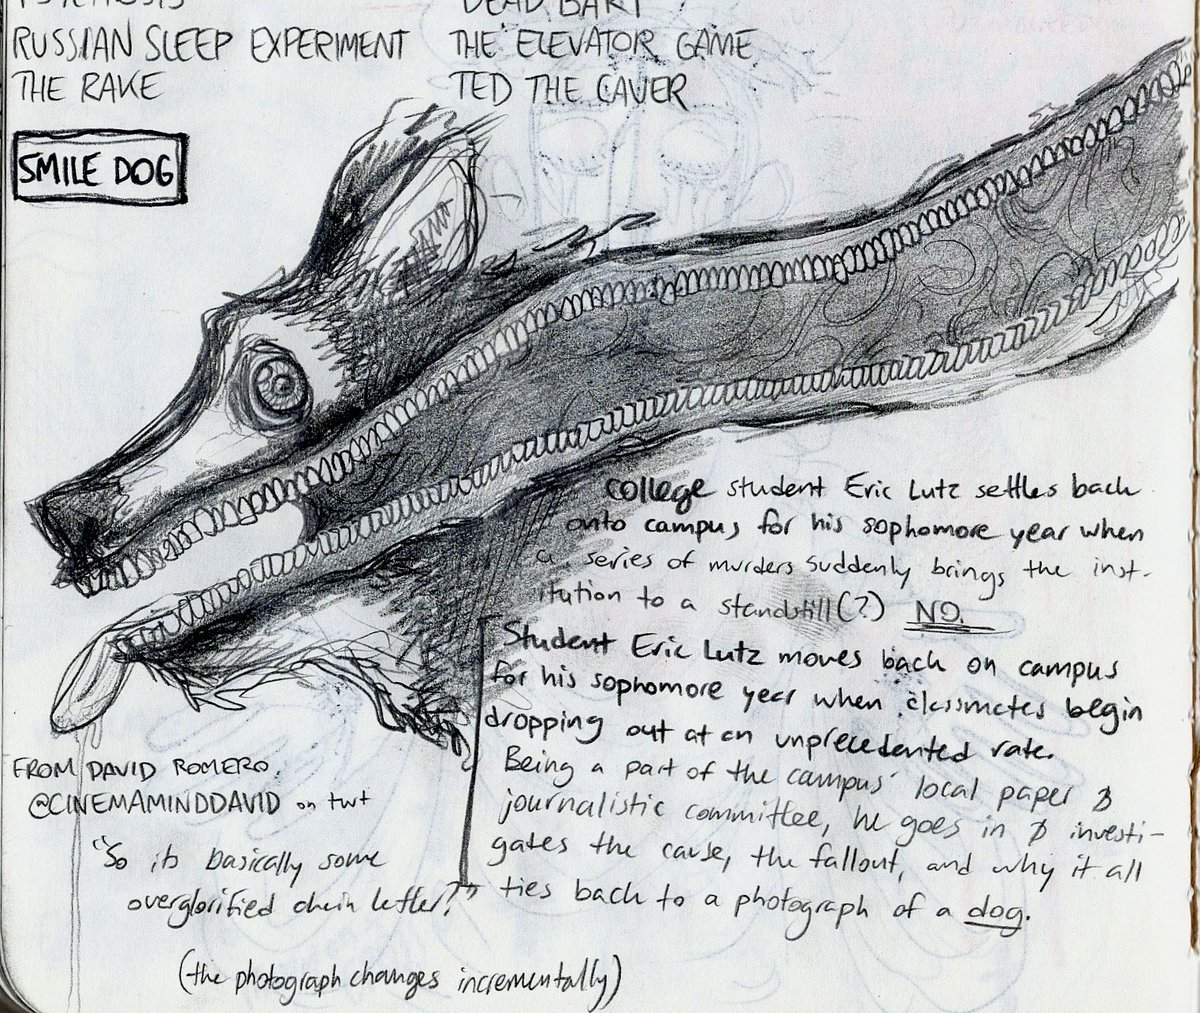 PSYCHOSIS
RUSSIAN SLEEP EXPERIMENT
THE RAKE
DEAD BART
THE ELEVATOR GAME
TED THE CAVER
SMILE DOG
college student Eric Lutz settles back
onto campus for his sophomore year when
a series of murders suddenly brings the inst-
itution to a standstill(?) NO.
Student Eric Lutz moves back on campus
for his sophomore year when classmates begin
dropping out at an unprecedented rate.
Being a part of the campus' local paper &
journalistic committee, he goes in & investi-
gates the cause, the fallout, and why it all
ties back to a photograph of a dog.
FROM DAVID ROMERO
@CINEMAMINDDAVID on twt
"So it's basically some
overglorified chain letter?"
(the photograph changes incrementally)